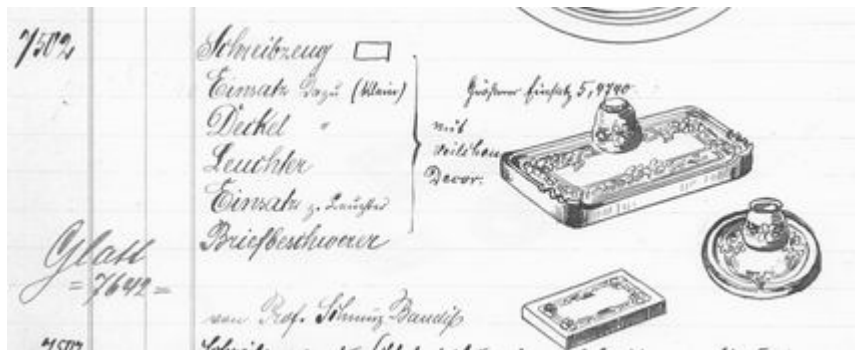 7502
Schreibzeug
Einsatz dazu (klein)
Deckel "
Leuchter
Einsatz z. Leuchter
Briefbeschwerer
Größerer Einsatz 5, 4740
mit
Veilchen
Decor.
Glatt
= 7642 =
von Prof. Schmuz-Baudiß